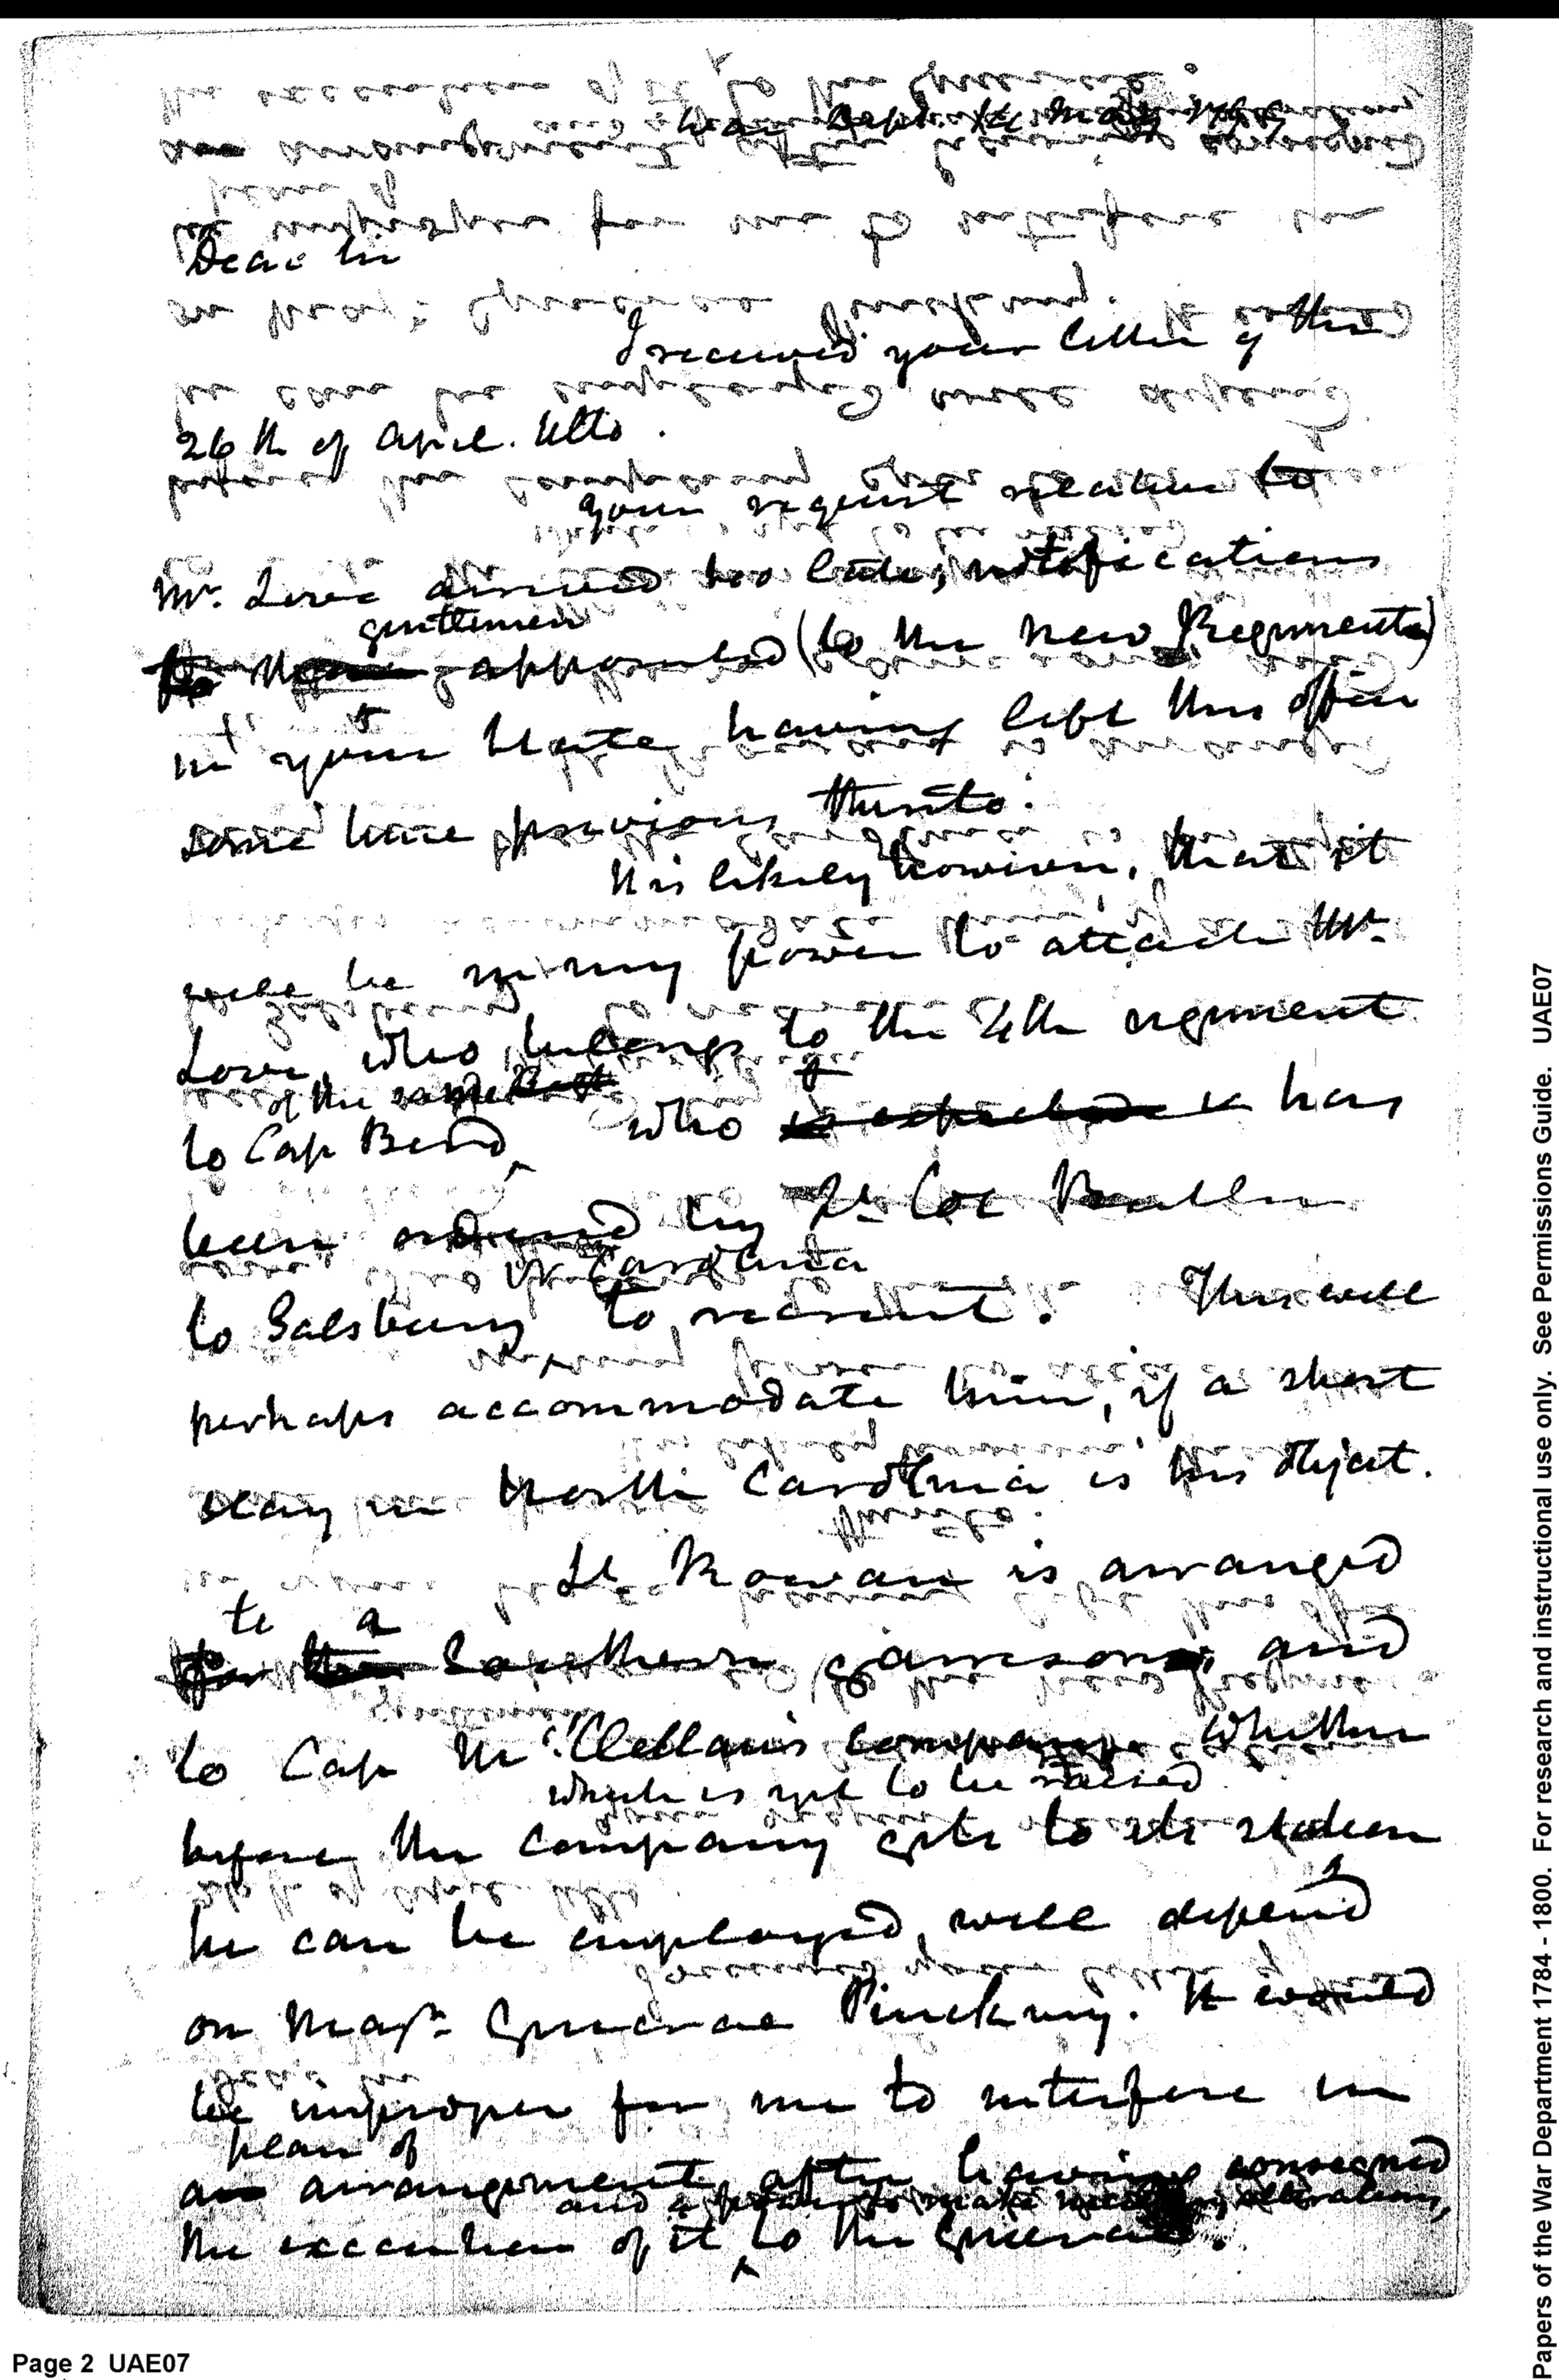 War Dept. 14 May 1799
Dear Sir
I received your letter of the
26th of April. Ulto.
Your request relative to
Mr. Love arrived too late, notifications
to those gentlemen appointed (to the new Regiments)
in your State having left this office
some time previous thereto.
It is likely however, that it
will be in my power to attach Mr.
Love, who belongs to the 4th regiment
to Cap Bird of the same who is expected is has
been ordered by Lt. Col Butler
to Salsbury N. Carolina to recruit. This will
perhaps accommodate him, if a short
stay in North Carolina is his object.
Lt Rowan is arranged
for the to a Southern garrison, and
to Cap McClellan's company. Whether
before the company which is yet to be raised gets to its station
he can be employed, will depend
on Majr. General Pinckney. It would
be improper for me to interfere in
an plan of arrangement, after having consigned
the execution of it and a power to make necessary alterations, to the General.
Papers of the War Department 1784 - 1800. For research and instructional use only. See Permissions Guide. UAE07
Page 2 UAE07